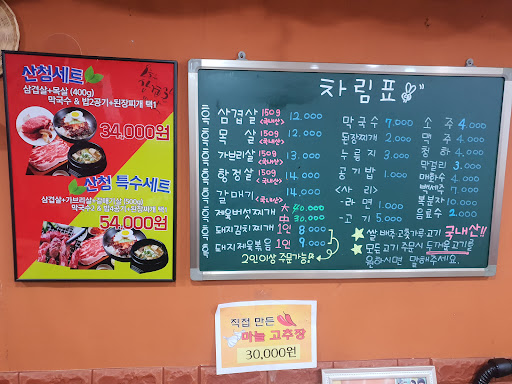 산청세트
삼겹살+목살 (400g)
막국수 & 밥2공기+된장찌개 택1
34,000원
산청 특수세트
삼겹살+가브리살+갈매기살 (500g)
막국수2 & 밥2공기+된장찌개 택1
54,000원
차림표
삼겹살 150g <국내산> 12,000
목살 150g <국내산> 12,000
가브리살 150g <국내산> 13,000
항정살 150g <국내산> 14,000
갈매기 150g <국내산> 13,000
제육버섯찌개 大 40,000
中 30,000
돼지김치찌개 1인 8,000
돼지제육볶음 1인 9,000
2인이상 주문가능
막국수 7,000
된장찌개 2,000
누룽지 3,000
공기밥 1,000
<사리>
-라면 1,000
-고기 5,000
소주 4,000
맥주 4,000
청하 4,000
막걸리 3,000
매화수 4,000
백세주 7,000
복분자 10,000
음료수 2,000
★쌀 배추 고춧가루 고기 국내산!!
★모든고기 주문시 두가음고기를
원하시면 말해주세요.
직접 만든
마늘 고추장
30,000원